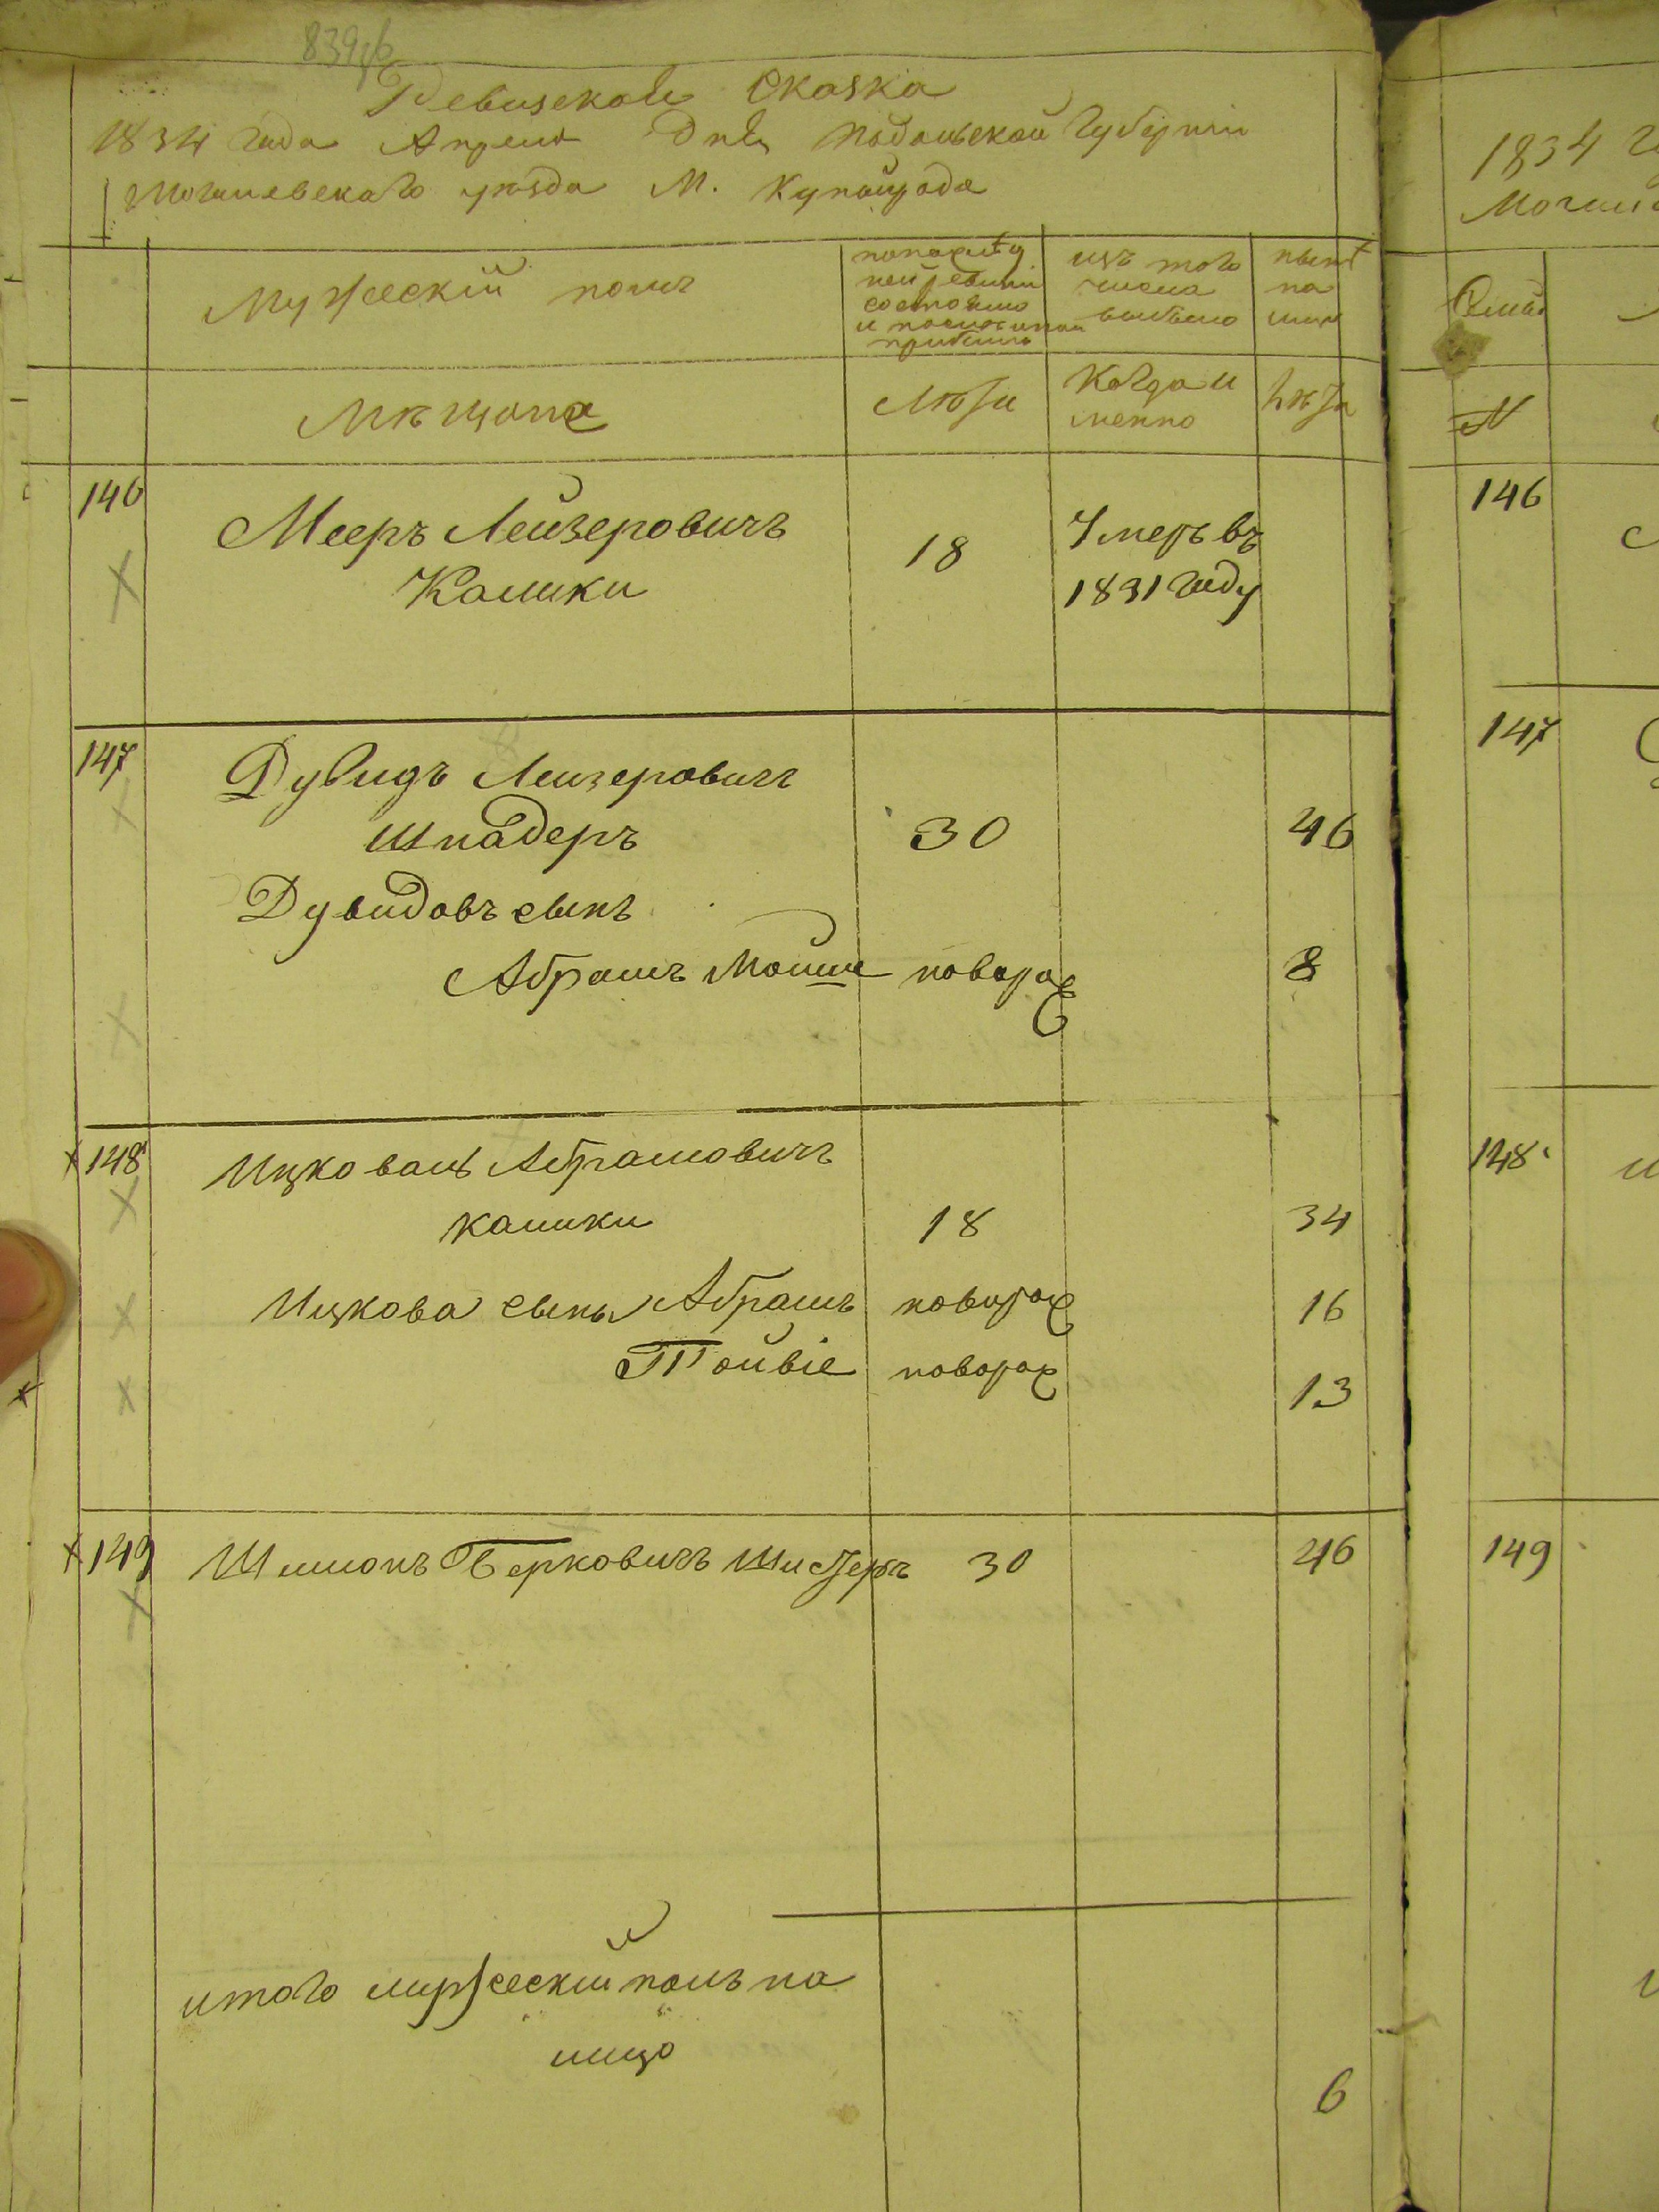 839об
Ревизская Сказка
1834 года Апреля Дня Подольской Губернiи
Могилевскаго уѣзда М. Купайгода
Мужескiй полъ
по последней ревизiи состояло и после оной прибыло
изъ того числа выбыло
ныне на лицо
Мѣщане
Лѣта
Когда именно
Лѣта
146
Мееръ Лейзеровичъ
Калики
18
Умеръ въ
1831 году
147
Дувидъ Лейзеровичъ
Шнадеръ
30
46
Дувидовъ сынъ
Абрамъ Мойше
новорож
8
148
Ицко Абрамовичъ
калики
18
34
Ицкова сыны Абрамъ
новорож
16
Тойвiе
новорож
13
149
Шлионъ Берковичъ
30
46
итого мужескiй полъ на
лицо
6
1834
146
147
148
149